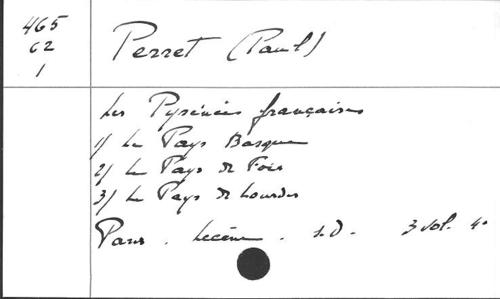 465
62
1
Perret (Paul)
Les Pyrénées françaises
1) Le Pays Basque
2) Le Pays de Foix
3) Le Pays de Lourdes
Paris. Lecène. s.d. 3 vol. 4°